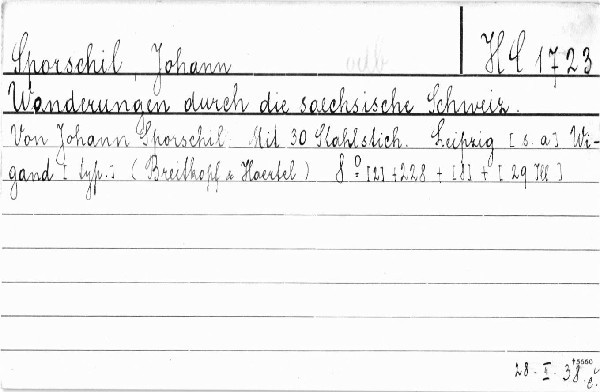 Sporschil, Johann HC 1723
Wanderungen durch die saechsische Schweiz.
Von Johann Sporschil. Mit 30 Stahlstich. Leipzig [s. a] Wi-
gand [typ.] (Breitkopf & Haertel) 8° [2] + 228 + [8] + [29 Ill]
28. X. 38.